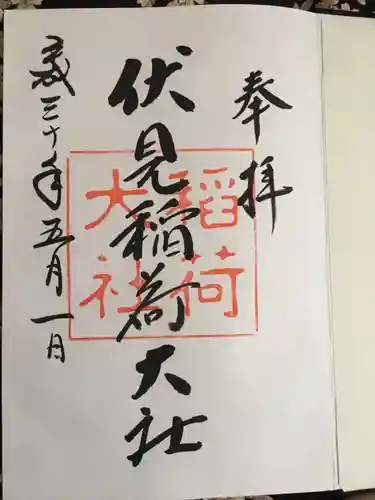 奉拝
伏見稲荷大社
稲荷
大社
平成三十年五月一日